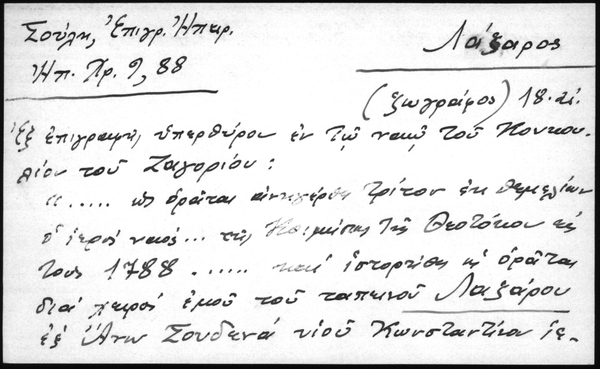 Σούλη, Ἐπιγρ. Ἠπειρ.
Ἠπ. Χρ. 9, 88
Λάζαρος
(ζωγράφος) 18. αἰ.
Ἐξ ἐπιγραφῆς ὑπερθύρου ἐν τῷ ναῷ τοῦ Κουκου-
λίου τοῦ Ζαγορίου:
"..... ὡς ὁρᾶται ἀνηγέρθη τρίτον ἐκ θεμελίων
ὁ ἱερός ναός... τῆς Κοιμήσεως τῆς Θεοτόκου εἰς
τους 1788 ...... καί ἱστορήθη ὡς ὁρᾶται
διά χειρός ἐμοῦ τοῦ ταπεινοῦ Λαζάρου
ἐξ Ἄνω Σουδενά υἱοῦ Κωνσταντίνου ἱε-